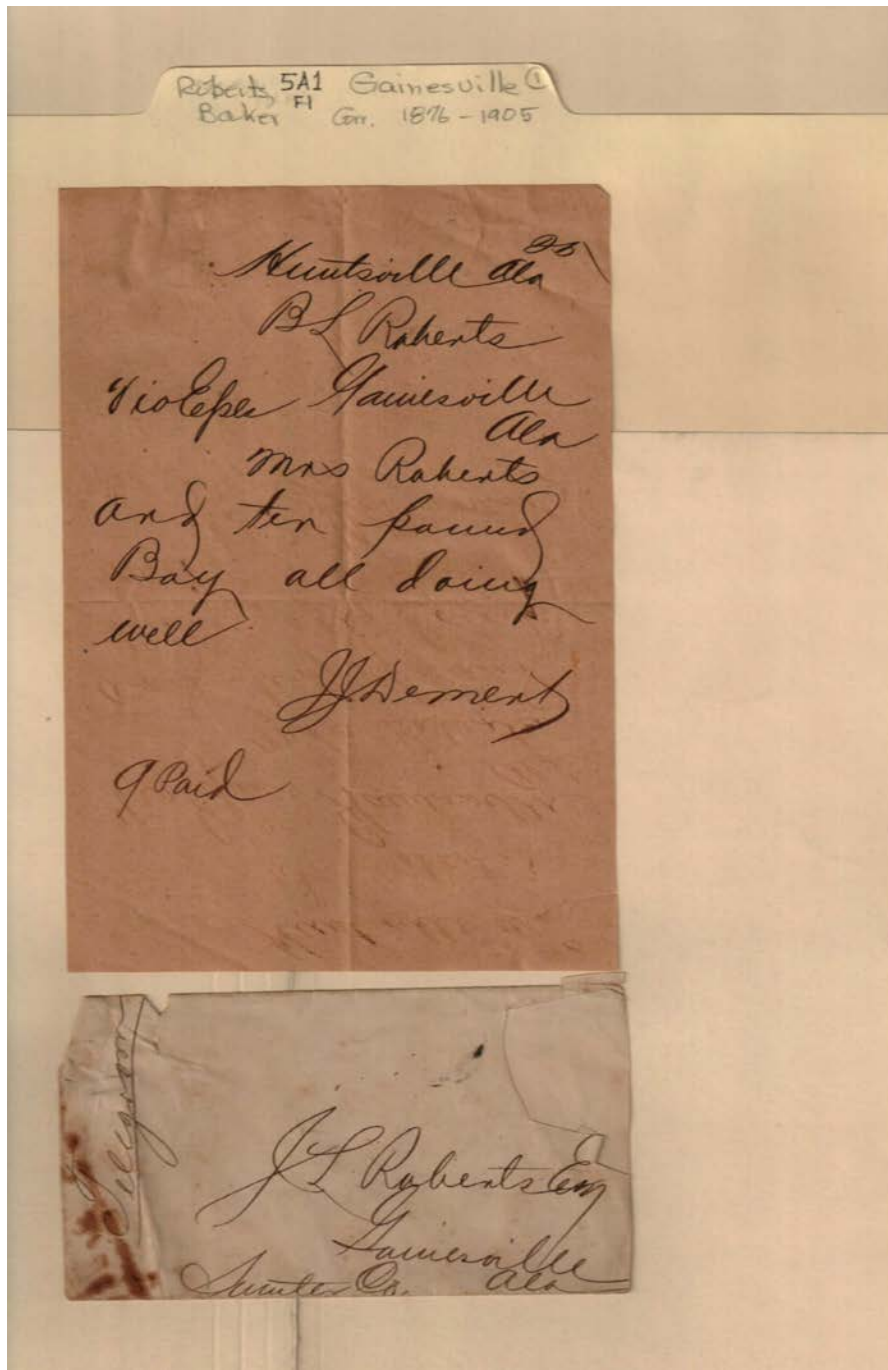 Roberts, 5A1 Gainesville ①
Baker F1 Corr. 1876-1905
Huntsville Ala
B L Roberts
via Epes Gainesville
Ala
Mrs Roberts
and ten pound
Boy all doing
well
J.J. Dement
9 Paid
Telegram
J L Roberts Esq
Gainesville
Sumter Co. Ala